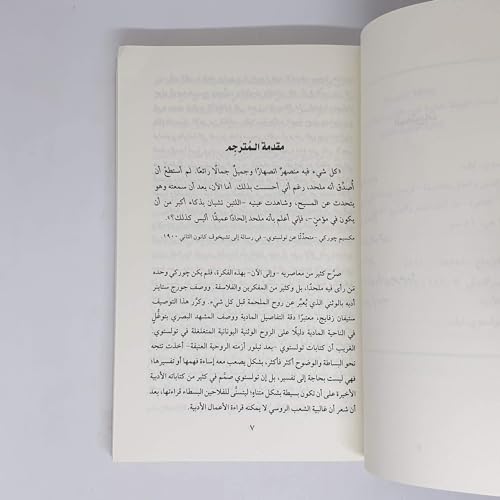 مقدمة المُترجِم
«كل شيء فيه منصهرٌ انصهارًا وجميلٌ جمالًا رائعًا. لم أستطع أن
أُصدِّق أنه ملحد، رغم أني أحسست بذلك. أما الآن، بعد أن سمعته وهو
يتحدث عن المسيح، وشاهدت عينيه -اللتين تشيان بذكاء أكبر من أن
يكون في مؤمنٍ-، فإني أعلم بأنه ملحد إلحادًا عميقًا. أليس كذلك؟».
مكسيم چوركي -متحدّثًا عن تولستوي- في رسالة إلى تشيخوف كانون الثاني ١٩٠٠
صرَّح كثير من معاصريه -وإلى الآن- بهذه الفكرة، فلم يكن چوركي وحده
مَن رأى فيه ملحدًا، بل وكثير من المفكرين والفلاسفة. ووصف جورج ستاينر
أدبه بالوثني الذي يُعبِّر عن روح الملحمة قبل كل شيء. وكرَّر هذا التوصيف
ستيفان زفايج، معتبرًا دقة التفاصيل المادية ووصف المشهد البصري بتوغُّلٍ
في الناحية المادية دليلًا على الروح الوثنية اليونانية المتغلغلة في تولستوي.
الغريب أن كتابات تولستوي -بعد تبلور أزمته الروحية العنيفة- أخذت تتجه
نحو البساطة والوضوح أكثر فأكثر، بشكل يصعب معه إساءة فهمها أو تفسيرها؛
فهي ليست بحاجة إلى تفسير، بل إن تولستوي صمَّم في كثير من كتاباته الأدبية
الأخيرة على أن تكون بسيطة بشكل متناهٍ؛ ليتسنَّى للفلاحين البسطاء قراءتها، بعد
أن شعر أن غالبية الشعب الروسي لا يمكنه قراءة الأعمال الأدبية.
٧